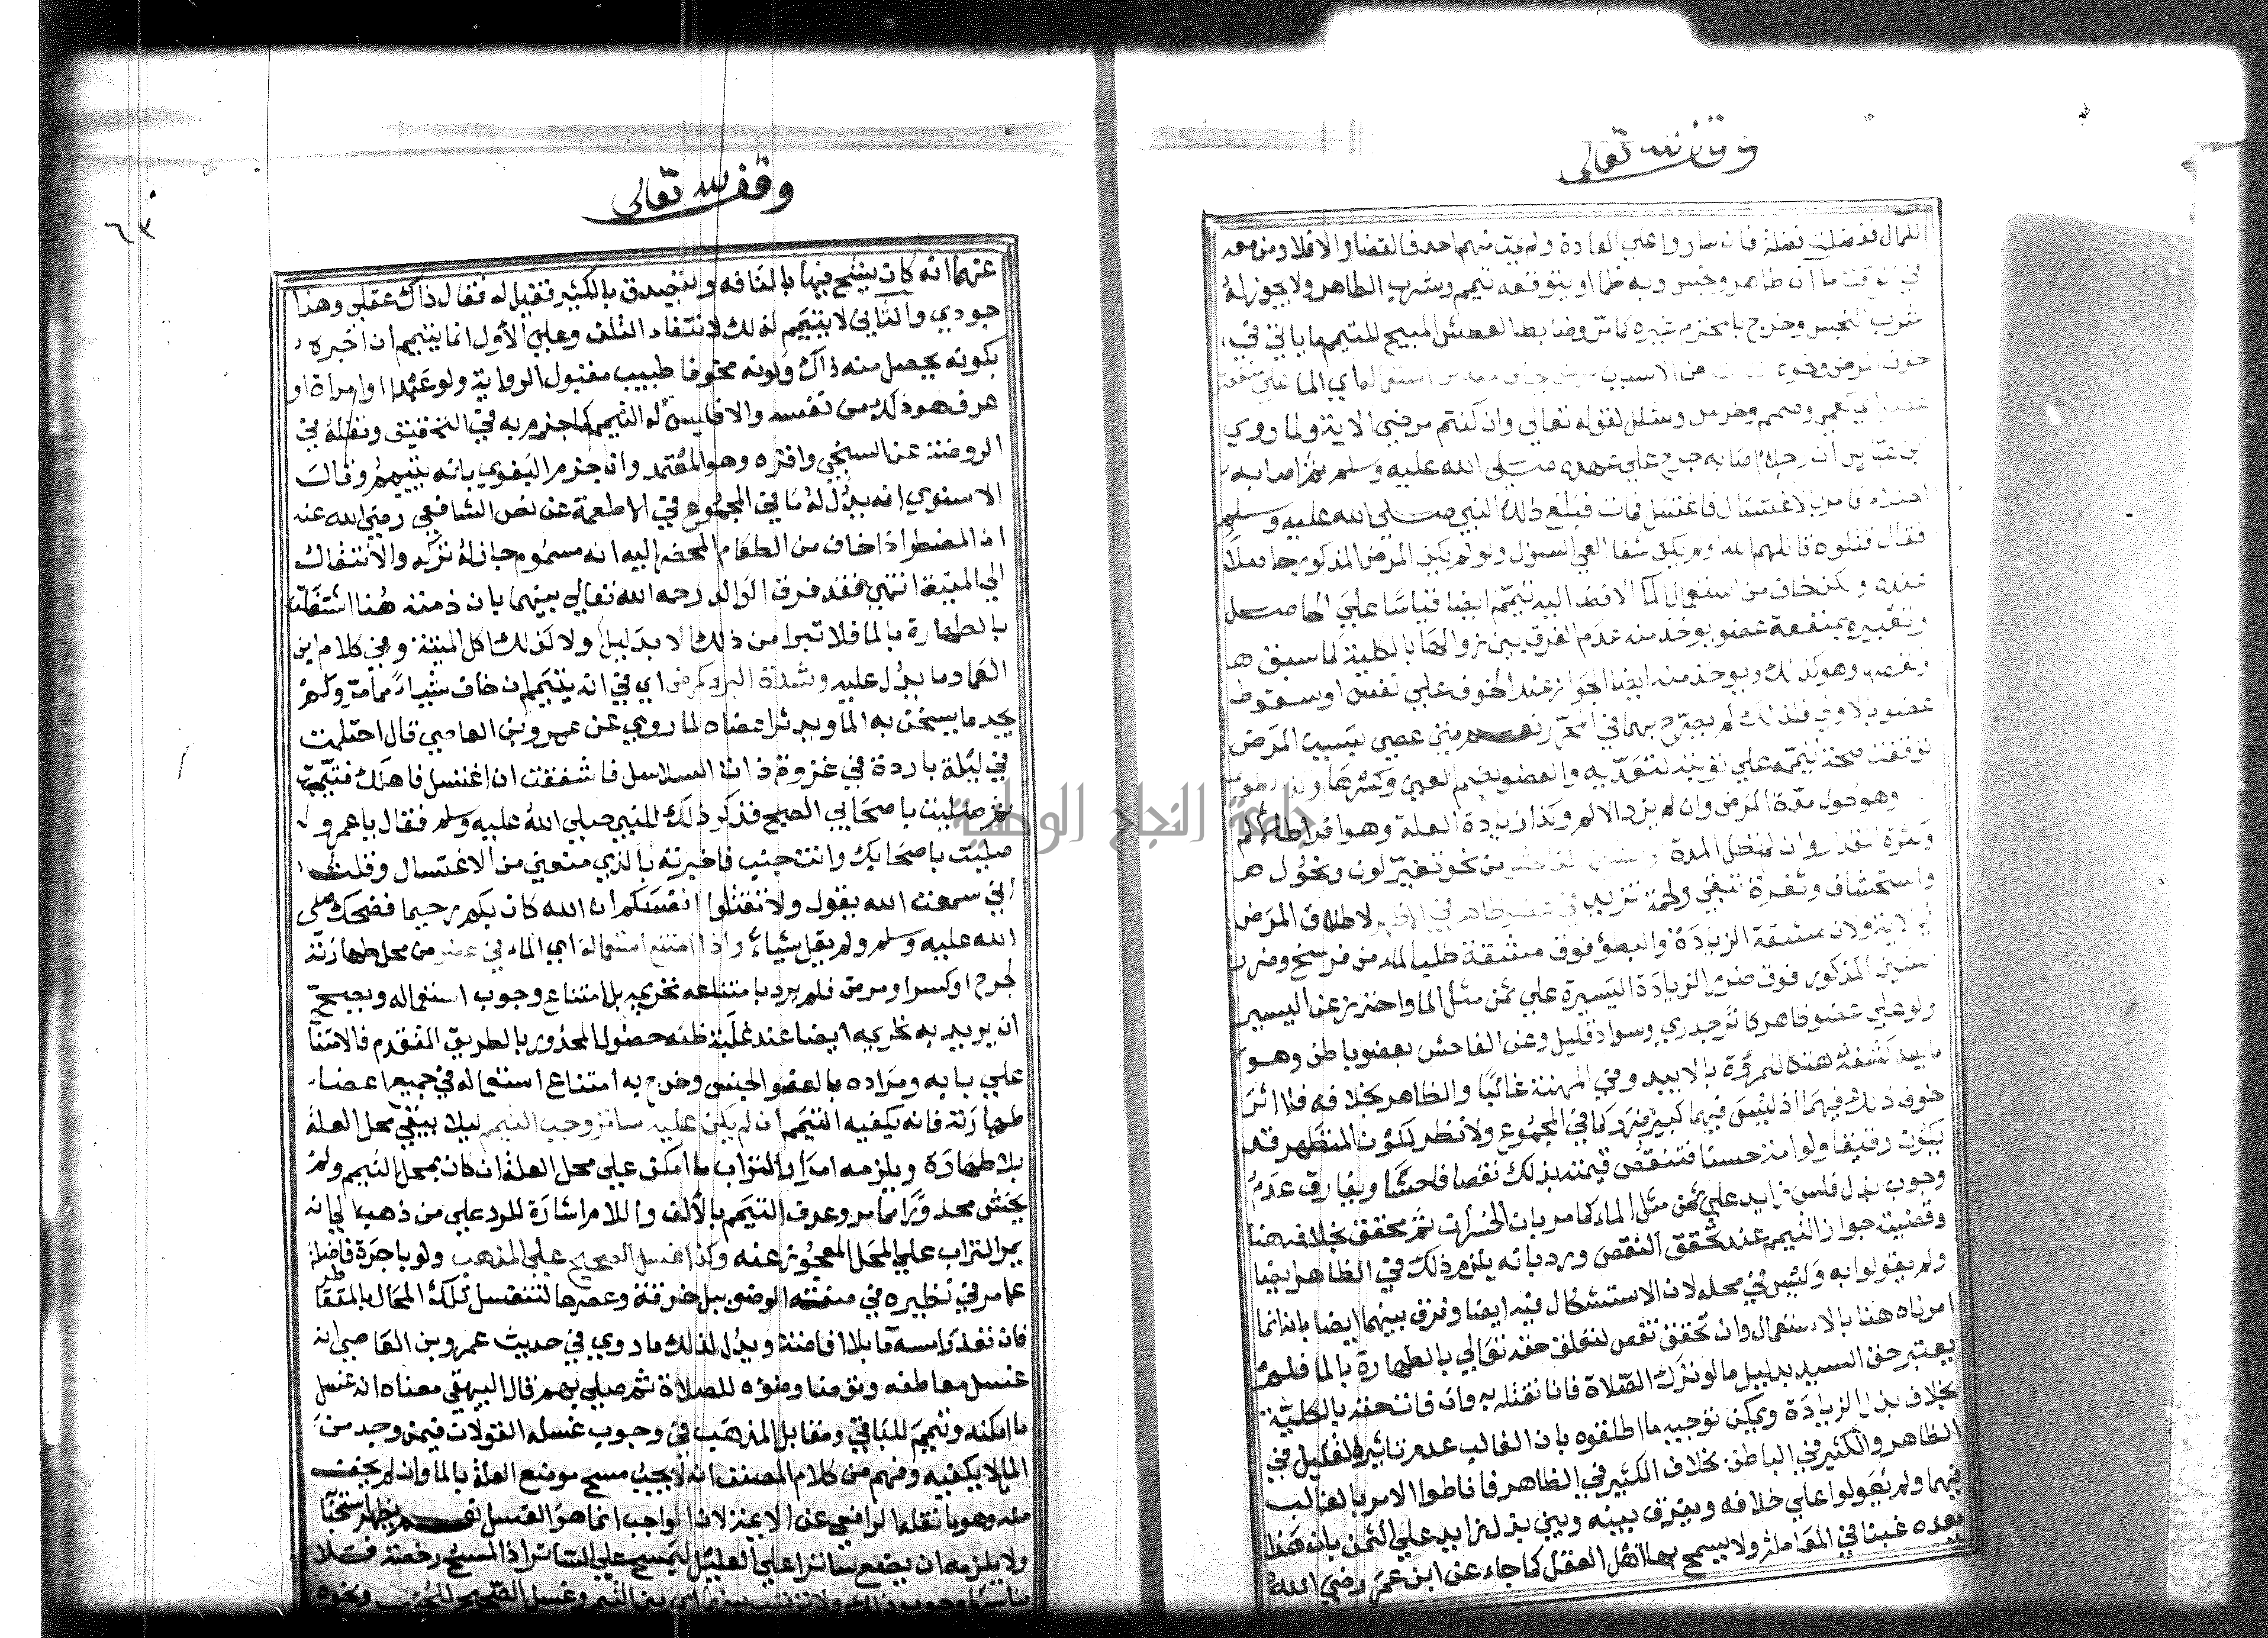 وقف لله تعالى
للمال قد فضلت فضلة فان ساروا على العادة ولم يمت منهم احد فالقضا والا فلا ومن معه
ما آن طاهر ونجس وبه ظما او يتوقعه تيمم وشرب الطاهر ولا يجوز له
شرب النجس وخرج بالمحترم غيره كما مر وضابط العطش المبيح للتيمم ما ياتي في
خوف المرض ونحوه من الاسباب مرض استعماله اي الما على منفعة
عضو اي كعمى وصمم وخرس وشلل لقوله تعالى وان كنتم مرضى الاية ولما روي
عن ابن عباس ان رجلا اصابه جرح على عهده صلى الله عليه وسلم ثم اصابه
فامر بالاغتسال فاغتسل فمات فبلغ ذلك النبي صلى الله عليه وسلم
فقال قتلوه قاتلهم الله اولم يكن شفا العي السوال ولو لم يكن المرض المذكور حاصلا
عنده ولكن خاف من استعمال الما الافضا اليه تيمم ايضا قياسا على الحاصل
وتعبيره بمنفعة عضو يوخذ منه عدم الفرق بين زوالها بالكلية لما سبق
ونقصها وهو كذلك ويوخذ منه ايضا الجواز عند الخوف على نفس او سقوط
عضو بالاولى فلذلك لم يصرح بهما في المحرر نعم متى عصى بسبب المرض
توقفت صحة تيممه على توبته لتعديه والعضو بضم العين وكسرها
وهو طول مدة المرض وان لم يزد الالم وكذا زيادة العلة وهو افراط الالم
وكثرة المقدار وان لم تطل المدة والشين الفاحش من نحو تغير لون ونحول
واستحشاف وثغرة تبقى ولحمة تزيد في عضو ظاهر في الاظهر لاطلاق المرض
في الاية ولان مشقة الزيادة والبطؤ فوق مشقة طلب الماء من فرسخ وضرر
الشين المذكور فوق ضرر الزيادة اليسيرة على ثمن مثل الما واحترز عن اليسير
ولو على عضو ظاهر كاثر جدري وسواد قليل وعن الفاحش بعضو باطن وهو
ما يعد كشفه هتكا للمروة بالا يبدو في المهنة غالبا والظاهر بخلافه فلا اثر
لخوف ذلك فيهما اذ ليس فيهما كبير ضرر كما في المجموع ولا نظر لكون المتطهر قد
يكون رقيقا ولو امة حسنا فتنقص قيمته بذلك نقصا فاحشا ويفارق عدم
وجوب بذل فلس زايد على ثمن مثل الماء كما مر بان الخسران ثم محقق بخلافه هنا
وقضيته جواز التيمم عند تحقق النقص ورد بانه يلزم ذلك في الظاهر ايضا
ولم يقولوا به وليس في محله لان الاستشكال فيه ايضا وفرق بينهما ايضا بانا انما
امرناه هنا بالاستعمال وان تحقق نقص لتعلق حقه تعالى بالطهارة بالما فلم
يعتبر حق السيد بدليل ما لو ترك الصلاة فانا نقتله به وان فات حقه بالكلية
بخلاف بذل الزيادة ويمكن توجيه ما اطلقوه بان الغالب عدم تاثير القليل في
الظاهر والكثير في الباطن بخلاف الكثير في الظاهر فاناطوا الامر بالغالب
فيهما ولم يعولوا على خلافه ويفرق بينه وبين بذل زايد على الثمن بان هذا
يعده غبنا في المعاملة ولا يسمح بها اهل العقل كما جاء عن ابن عمر رضي الله
وقف لله تعالى
٦٣
عنهما انه كان يشح فيها بالتافه ويتصدق بالكثير فقيل له فقال ذاك عقلى وهذا
جودي والثاني لا يتيمم لذلك لانتفاء التلف وعلى الاول انما يتيمم ان اخبره
بكونه يحصل منه ذاك وكونه مخوفا طبيب مقبول الرواية ولو عبدا او امراة او
عرف هو ذلك من نفسه والا فليس له التيمم كما جزم به في التحقيق ونقله في
الروضة عن السنجي واقره وهو المعتمد وان جزم البغوي بانه يتيمم وقال
الاسنوي انه يدل له ما في المجموع في الاطعمة عن نص الشافعي رضي الله عنه
ان المضطر اذا خاف من الطعام المحضر اليه انه مسموم جاز له تركه والانتقال
الى الميتة انتهى فقد فرق الوالد رحمه الله تعالى بينهما بان ذمته هنا اشتغلت
بالطهارة بالما فلا تبرا من ذلك الا بدليل ولا كذلك اكل الميتة وفي كلام ابن
العماد ما يدل عليه وشدة البرد كمرض اي في انه يتيمم ان خاف شياء مما مر ولم
يجد ما يسخن به الما ويدثر اعضاه لما روي عن عمرو بن العاصي قال احتلمت
في ليلة باردة في غزوة ذات السلاسل فاشفقت ان اغتسل فاهلك فتيممت
ثم صليت باصحابي الصبح فذكر ذلك للنبي صلى الله عليه وسلم فقال يا عمرو
صليت باصحابك وانت جنب فاخبرته بالذي منعني من الاغتسال وقلت
اني سمعت الله يقول ولا تقتلوا انفسكم ان الله كان بكم رحيما فضحك صلى
الله عليه وسلم ولم يقل شياء واذا امتنع استعماله اي الماء في عضو من محل طهارته
لجرح او كسر او مرض فلم يرد بامتناعه تحريمه بل امتناع وجوب استعماله ويصح
ان يريد به تحريمه ايضا عند غلبة ظنه حصول المحذور بالطريق المتقدم فالامتنا
على بابه ومراده بالعضو الجنس وخرج به امتناع استعماله في جميع اعضاء
طهارته فانه يكفيه التيمم ان لم يكن عليه ساتر وجب التيمم ليلا يبقى محل العلة
بلا طهارة ويلزمه امرار التراب ما امكن على محل العلة ان كان بمحل التيمم ولم
يخش محذورا مما مر وعرف التيمم بالالف واللام اشارة للرد على من ذهب الى انه
يمر التراب على المحل المعجوز عنه وكذا غسل الصحيح على المذهب ولو باجرة فاضلة
عما مر في نظيره في الوضو ببل خرقة وعصرها لتنغسل تلك المحال بالمتقاطر
فان تعذر امسه ما بلا افاضة ويدل لذلك ما روي في حديث عمرو بن العاصي انه
غسل معاطفه وتوضا وضؤه للصلاة ثم صلى بهم قال البيهقي معناه انه غسل
ما امكنه وتيمم للباقي ومقابل المذهب في وجوب غسله القولان فيمن وجد من
الما لا يكفيه وفهم من كلام المصنف انه لا يجب مسح موضع العلة بالما وان لم يخف
منه وهو ما نقله الرافعي عن الايمة لان الواجب انما هو الغسل نعم يظهر استحبا
ولا يلزمه ان يضع ساترا على العليل ليمسح على الساتر اذ المسح رخصة فلا
يناسبها وجوب ذلك ولا ترتيب بينهما اي بين التيمم وغسل الصحيح للجنب ونحوه